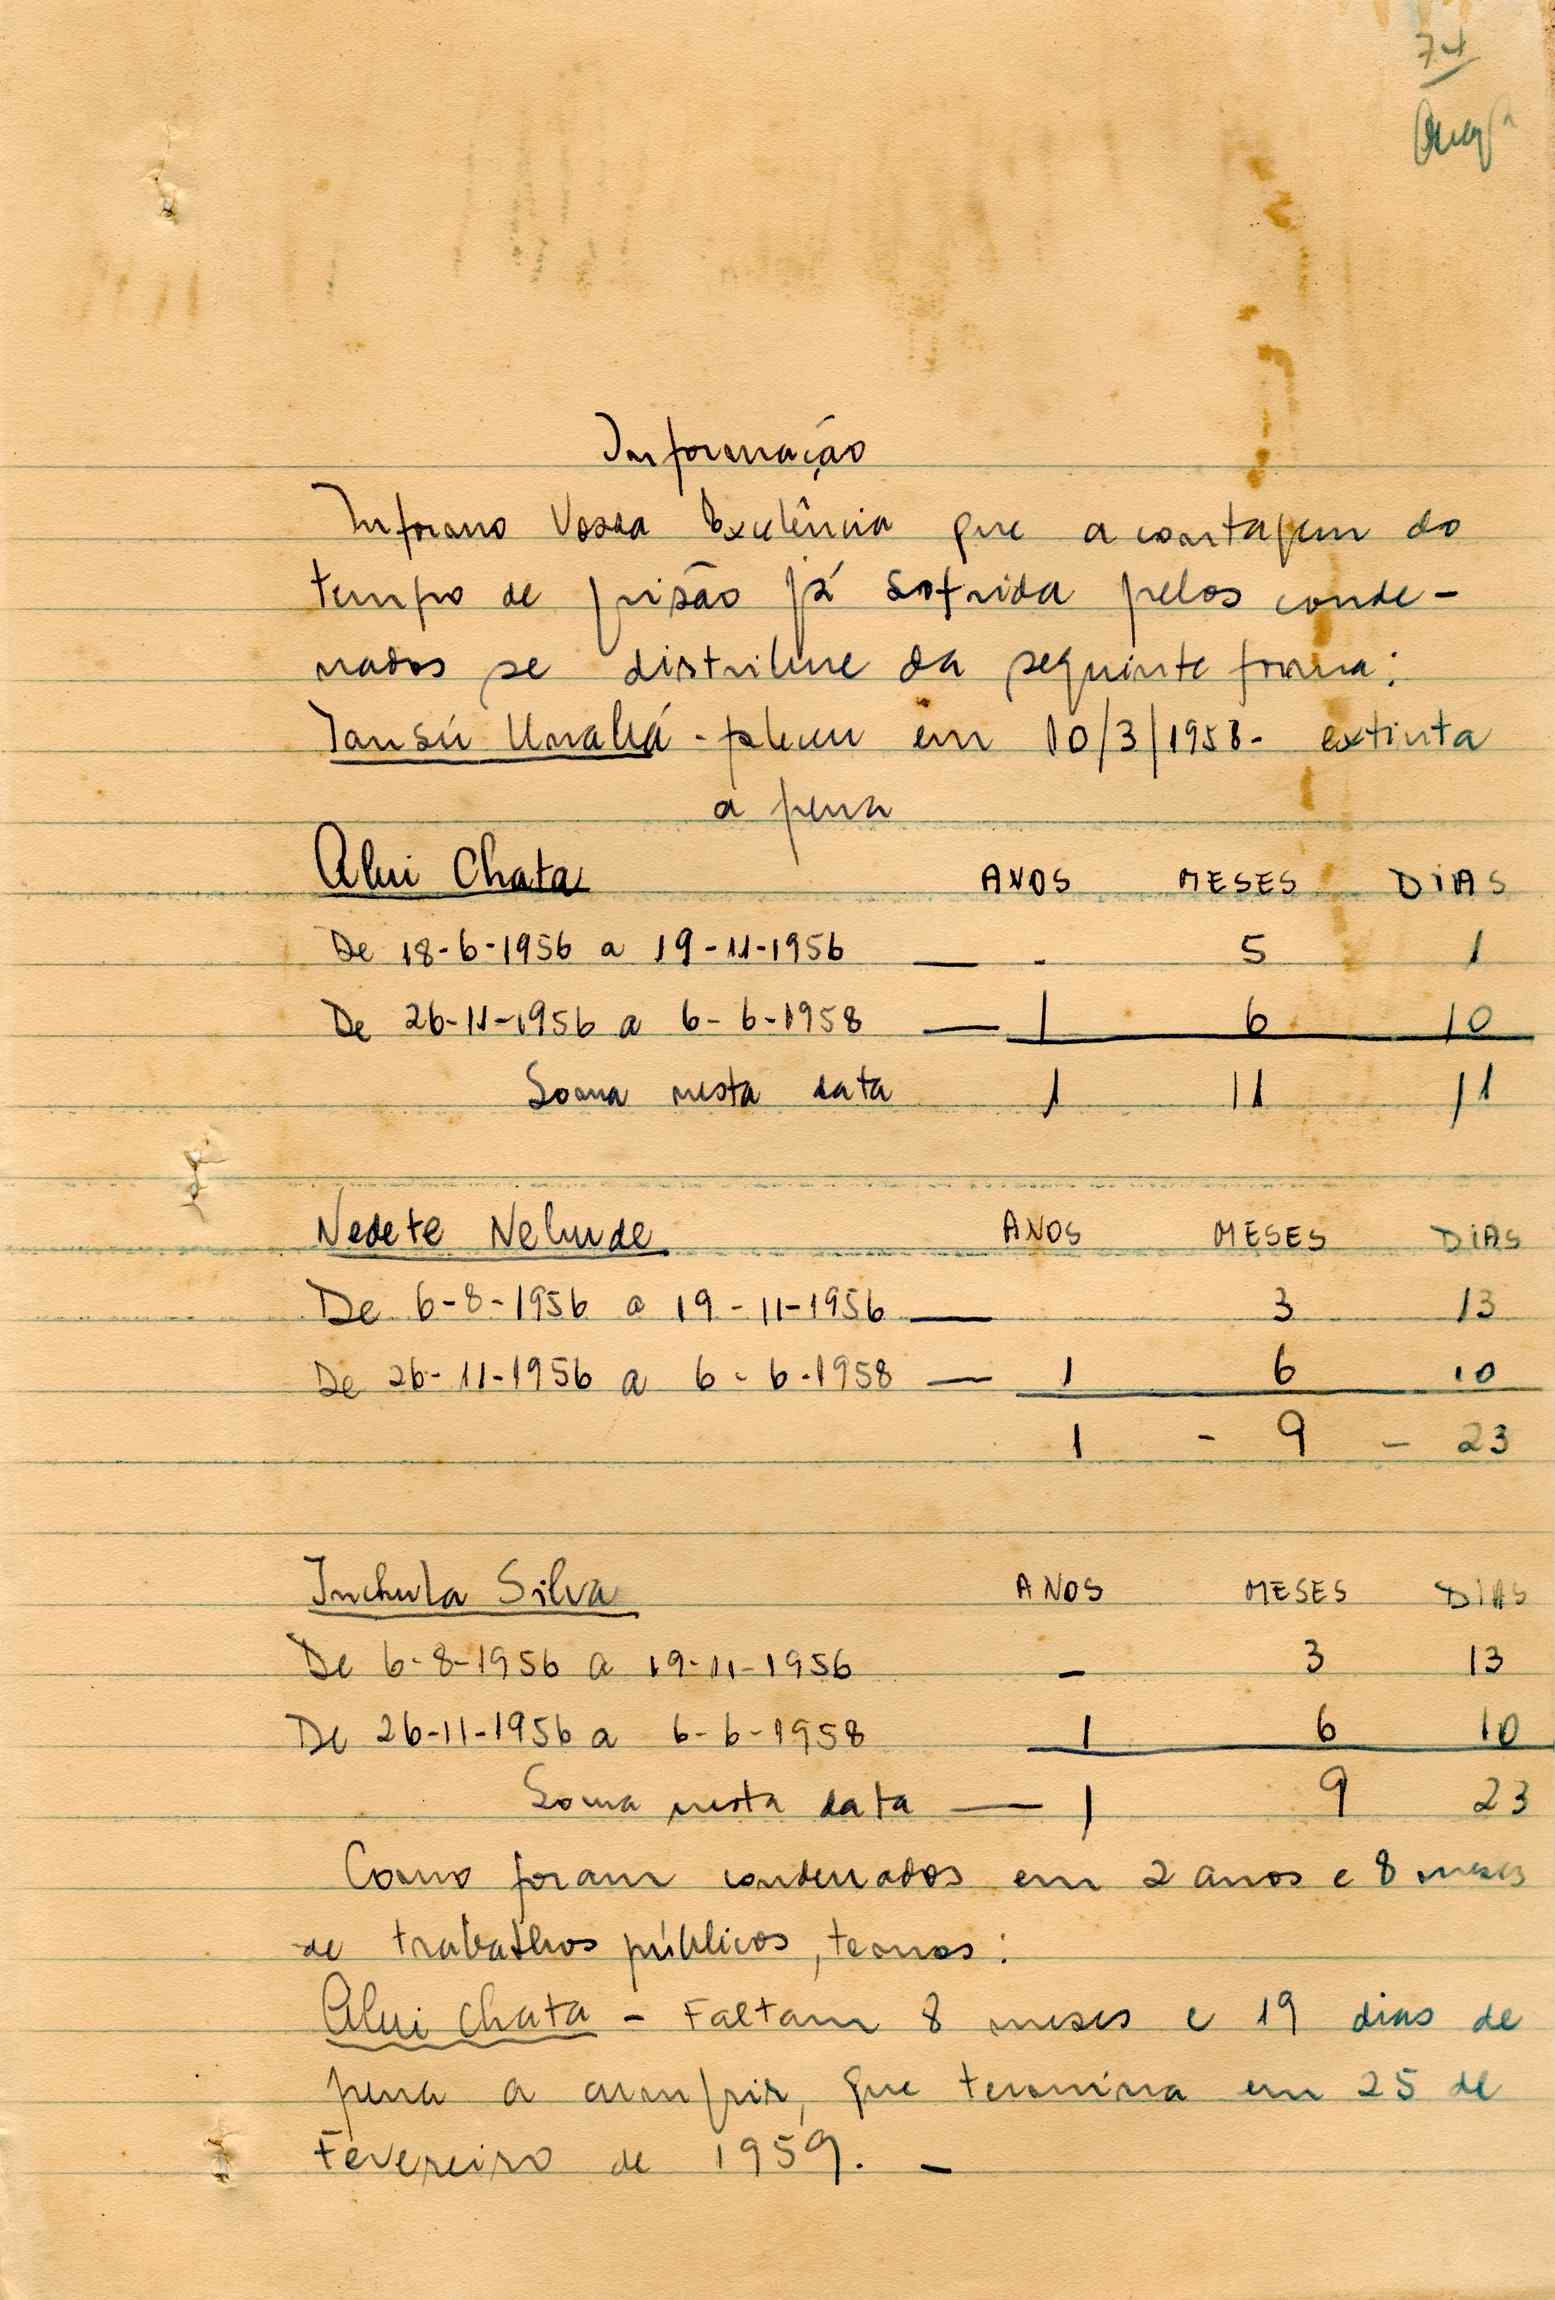 74
Informação
Informo Vossa Excelência que a contagem do
tempo de prisão já sofrida pelos conde-
nados se distribue da seguinte forma:
- faleceu em 10/3/1958 - extinta
a pena
Alui Chata ANOS MESES DIAS
De 18-6-1956 a 19-11-1956 — - 5 1
De 26-11-1956 a 6-6-1958 — 1 6 10
Soma nesta data 1 11 11
Nedete Nebunde ANOS MESES DIAS
De 6-8-1956 a 19-11-1956 — 3 13
De 26-11-1956 a 6-6-1958 — 1 6 10
1 - 9 - 23
Inchula Silva ANOS MESES DIAS
De 6-8-1956 a 19-11-1956 - 3 13
De 26-11-1956 a 6-6-1958 1 6 10
Soma nesta data — 1 9 23
Como foram condenados em 2 anos e 8 meses
de trabalhos públicos, temos:
Alui Chata - Faltam 8 meses e 19 dias de
pena a cumprir, que termina em 25 de
Fevereiro de 1959. -